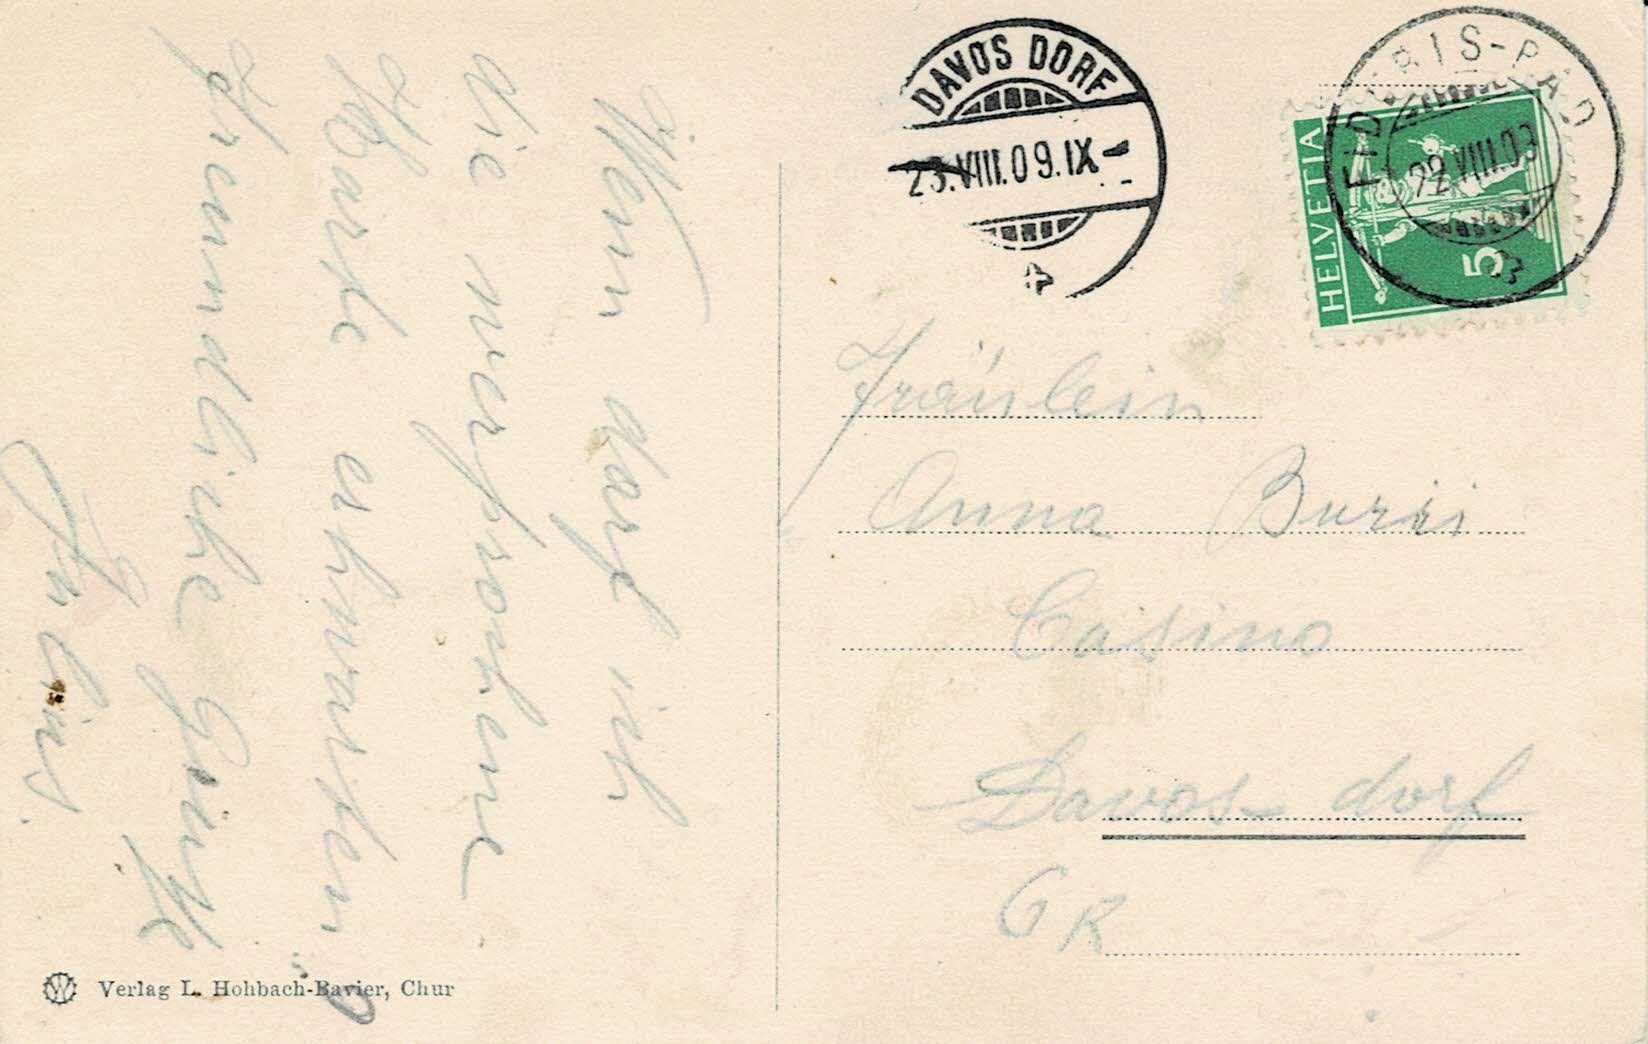 DAVOS DORF
23.VIII.09.IX
FIDERIS-BAD
22.VIII.09
HELVETIA
5
Fräulein
Anna Burri
Casino
Davos dorf
GR
Wenn darf ich
die versprochene
Karte erwarten?
freundliche Grüsse
Julius.
Verlag L. Hohbach-Bavier, Chur